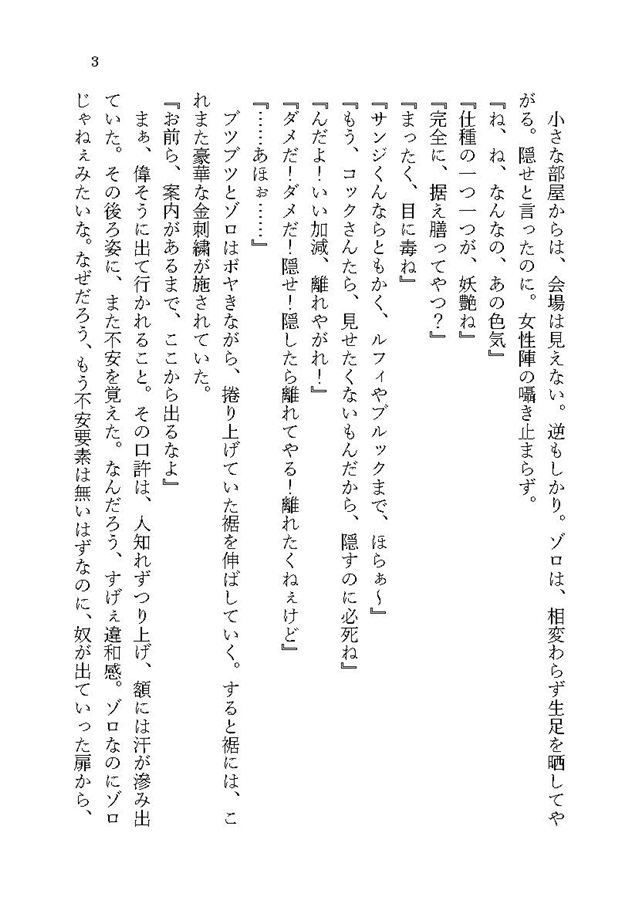 3
小さな部屋からは、会場は見えない。逆もしかり。ゾロは、相変わらず生足を晒してや
がる。隠せと言ったのに。女性陣の囁き止まらず。
『ね、ね、なんなの、あの色気』
『仕種の一つ一つが、妖艶ね』
『完全に、据え膳ってやつ？』
『まったく、目に毒ね』
『サンジくんならともかく、ルフィやブルックまで、ほらぁ～』
『もう、コックさんたら、見せたくないもんだから、隠すのに必死ね』
『んだよ！いい加減、離れやがれ！』
『ダメだ！ダメだ！隠せ！隠したら離れてやる！離れたくねぇけど』
『……あほぉ……』
ブツブツとゾロはボヤきながら、捲り上げていた裾を伸ばしていく。すると裾には、こ
れまた豪華な金刺繍が施されていた。
『お前ら、案内があるまで、ここから出るなよ』
まぁ、偉そうに出て行かれること。その口許は、人知れずつり上げ、額には汗が滲み出
ていた。その後ろ姿に、また不安を覚えた。なんだろう、すげぇ違和感。ゾロなのにゾロ
じゃねぇみたいな。なぜだろう、もう不安要素は無いはずなのに、奴が出ていった扉から、